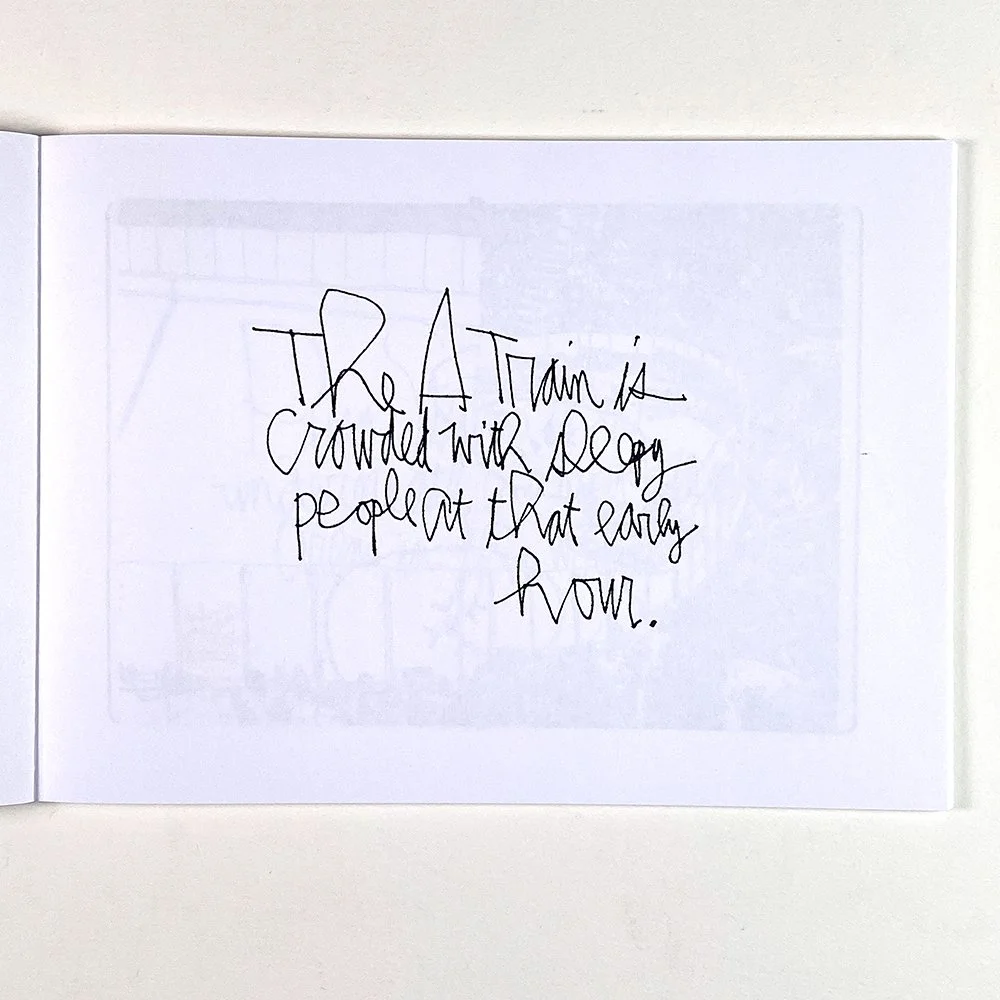 The A Train is
Crowded with sleepy
people at that early
hour.